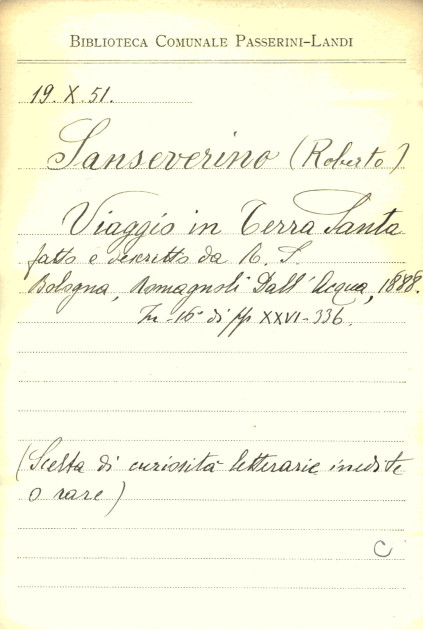 BIBLIOTECA COMUNALE PASSERINI-LANDI
19. X. 51.
Sanseverino (Roberto)
Viaggio in Terra Santa
fatto e descritto da R. S.
Bologna, Romagnoli Dall'Acqua, 1888.
In-16° di pp XXVI-336.
(Scelta di curiosità letterarie inedite
o rare)
C